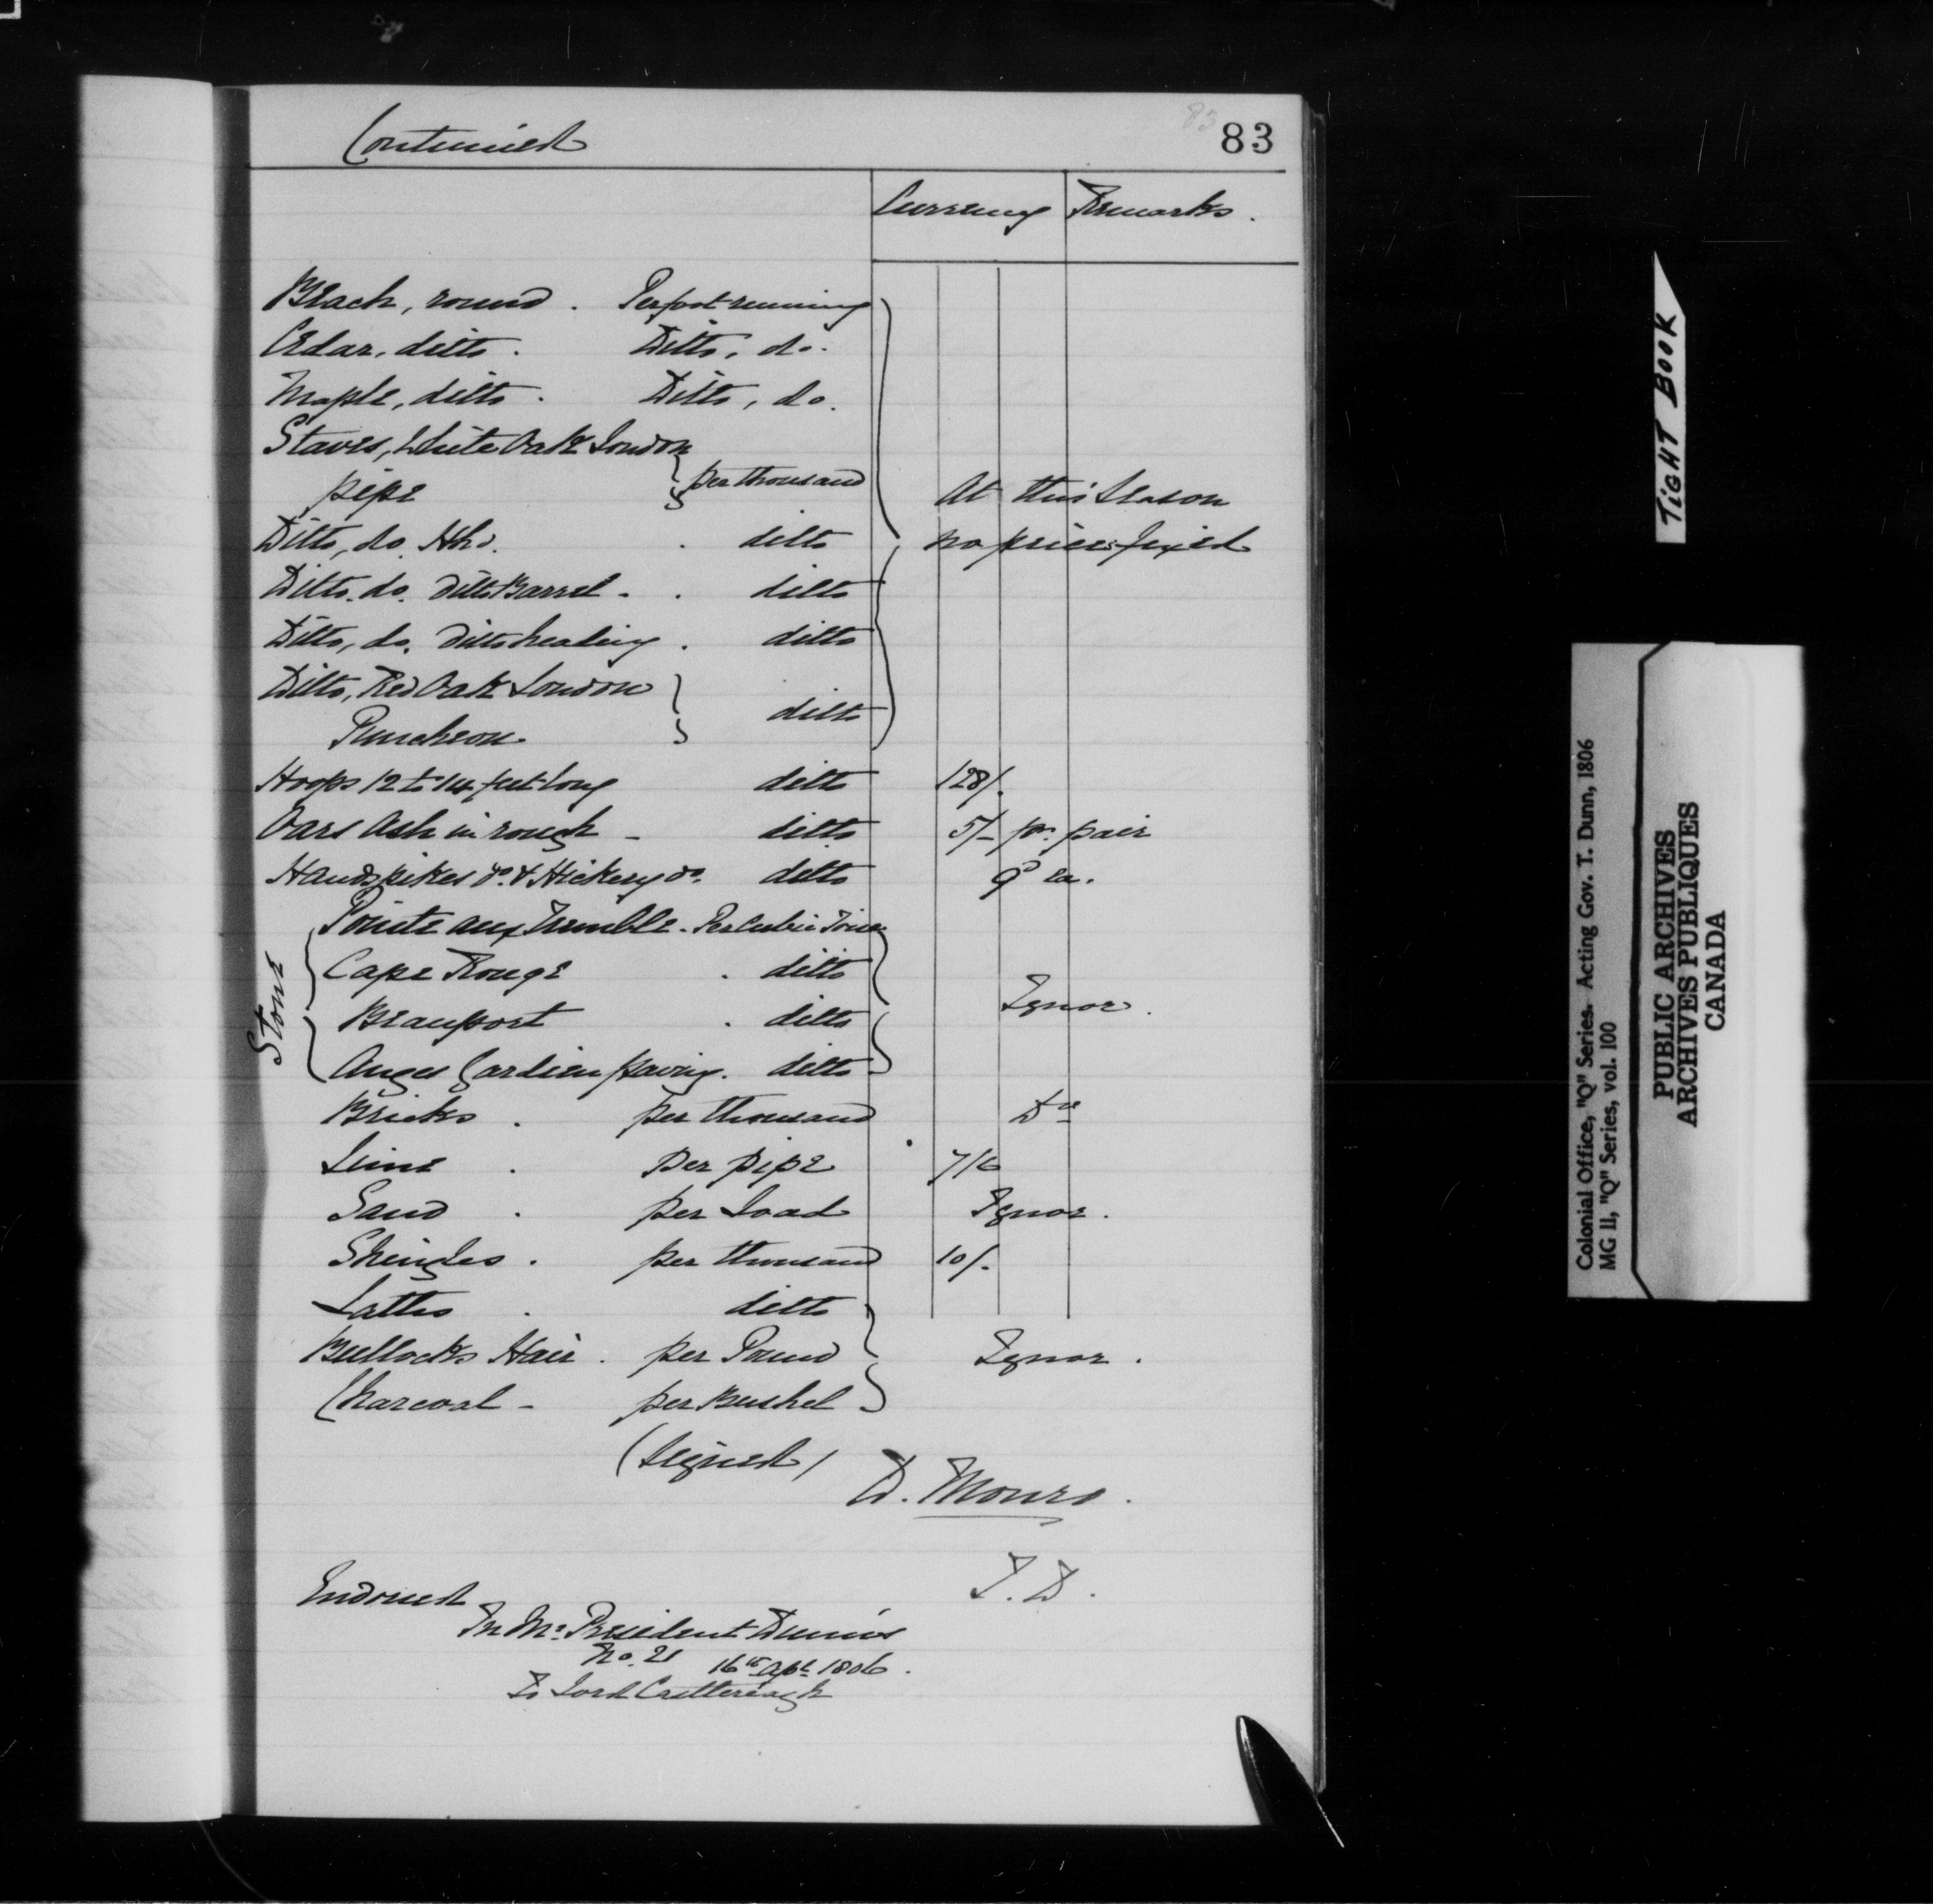 Continued
83
83
Currency Remarks.
Beach, round. Per foot running
Cedar, ditto. Ditto, do.
Maple, ditto. Ditto, do.
Staves, White Oak London
pipe } per thousand At this Season
Ditto, do. Hhd. ditto no prices fixed
Ditto, do. ditto Barrel. ditto
Ditto, do. ditto heading. ditto
Ditto, Red Oak London
Puncheon } ditto
Hoops 12 to 14 feet long ditto 128/.
Oars Ash in rough - ditto 5/- pr. pair
Handspikes do. & Hickery do. ditto 9d ea.
Stone
Pointe aux Tremble. Per Cubic Toise
Cape Rouge. ditto
Beauport. ditto Ignor.
Anges Gardien paving. ditto
Bricks. per thousand Do
Lime. per pipe 7/6
Sand. per Load Ignor.
Shingles. per thousand 10/.
Latths. ditto
Bullocks Hair. per Pound Ignor.
Charcoal - per Bushel
(Signed)
D. Monro.
T. D.
Endorsed
In Mr President Dunn's
No. 21 16th Apl. 1806.
To Lord Castlereagh
TIGHT BOOK
Colonial Office, "Q" Series. Acting Gov. T. Dunn, 1806
MG 11, "Q" Series, vol. 100
PUBLIC ARCHIVES
ARCHIVES PUBLIQUES
CANADA